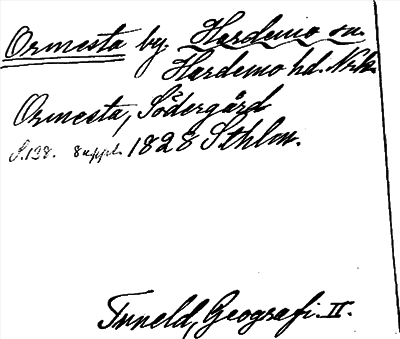 Ormesta by. Hardemo sn.
Hardemo hd. Nrk.
Ormesta, Södergård
S.138. 8 uppl. 1828 Sthlm.
Tuneld, Geografi. II.